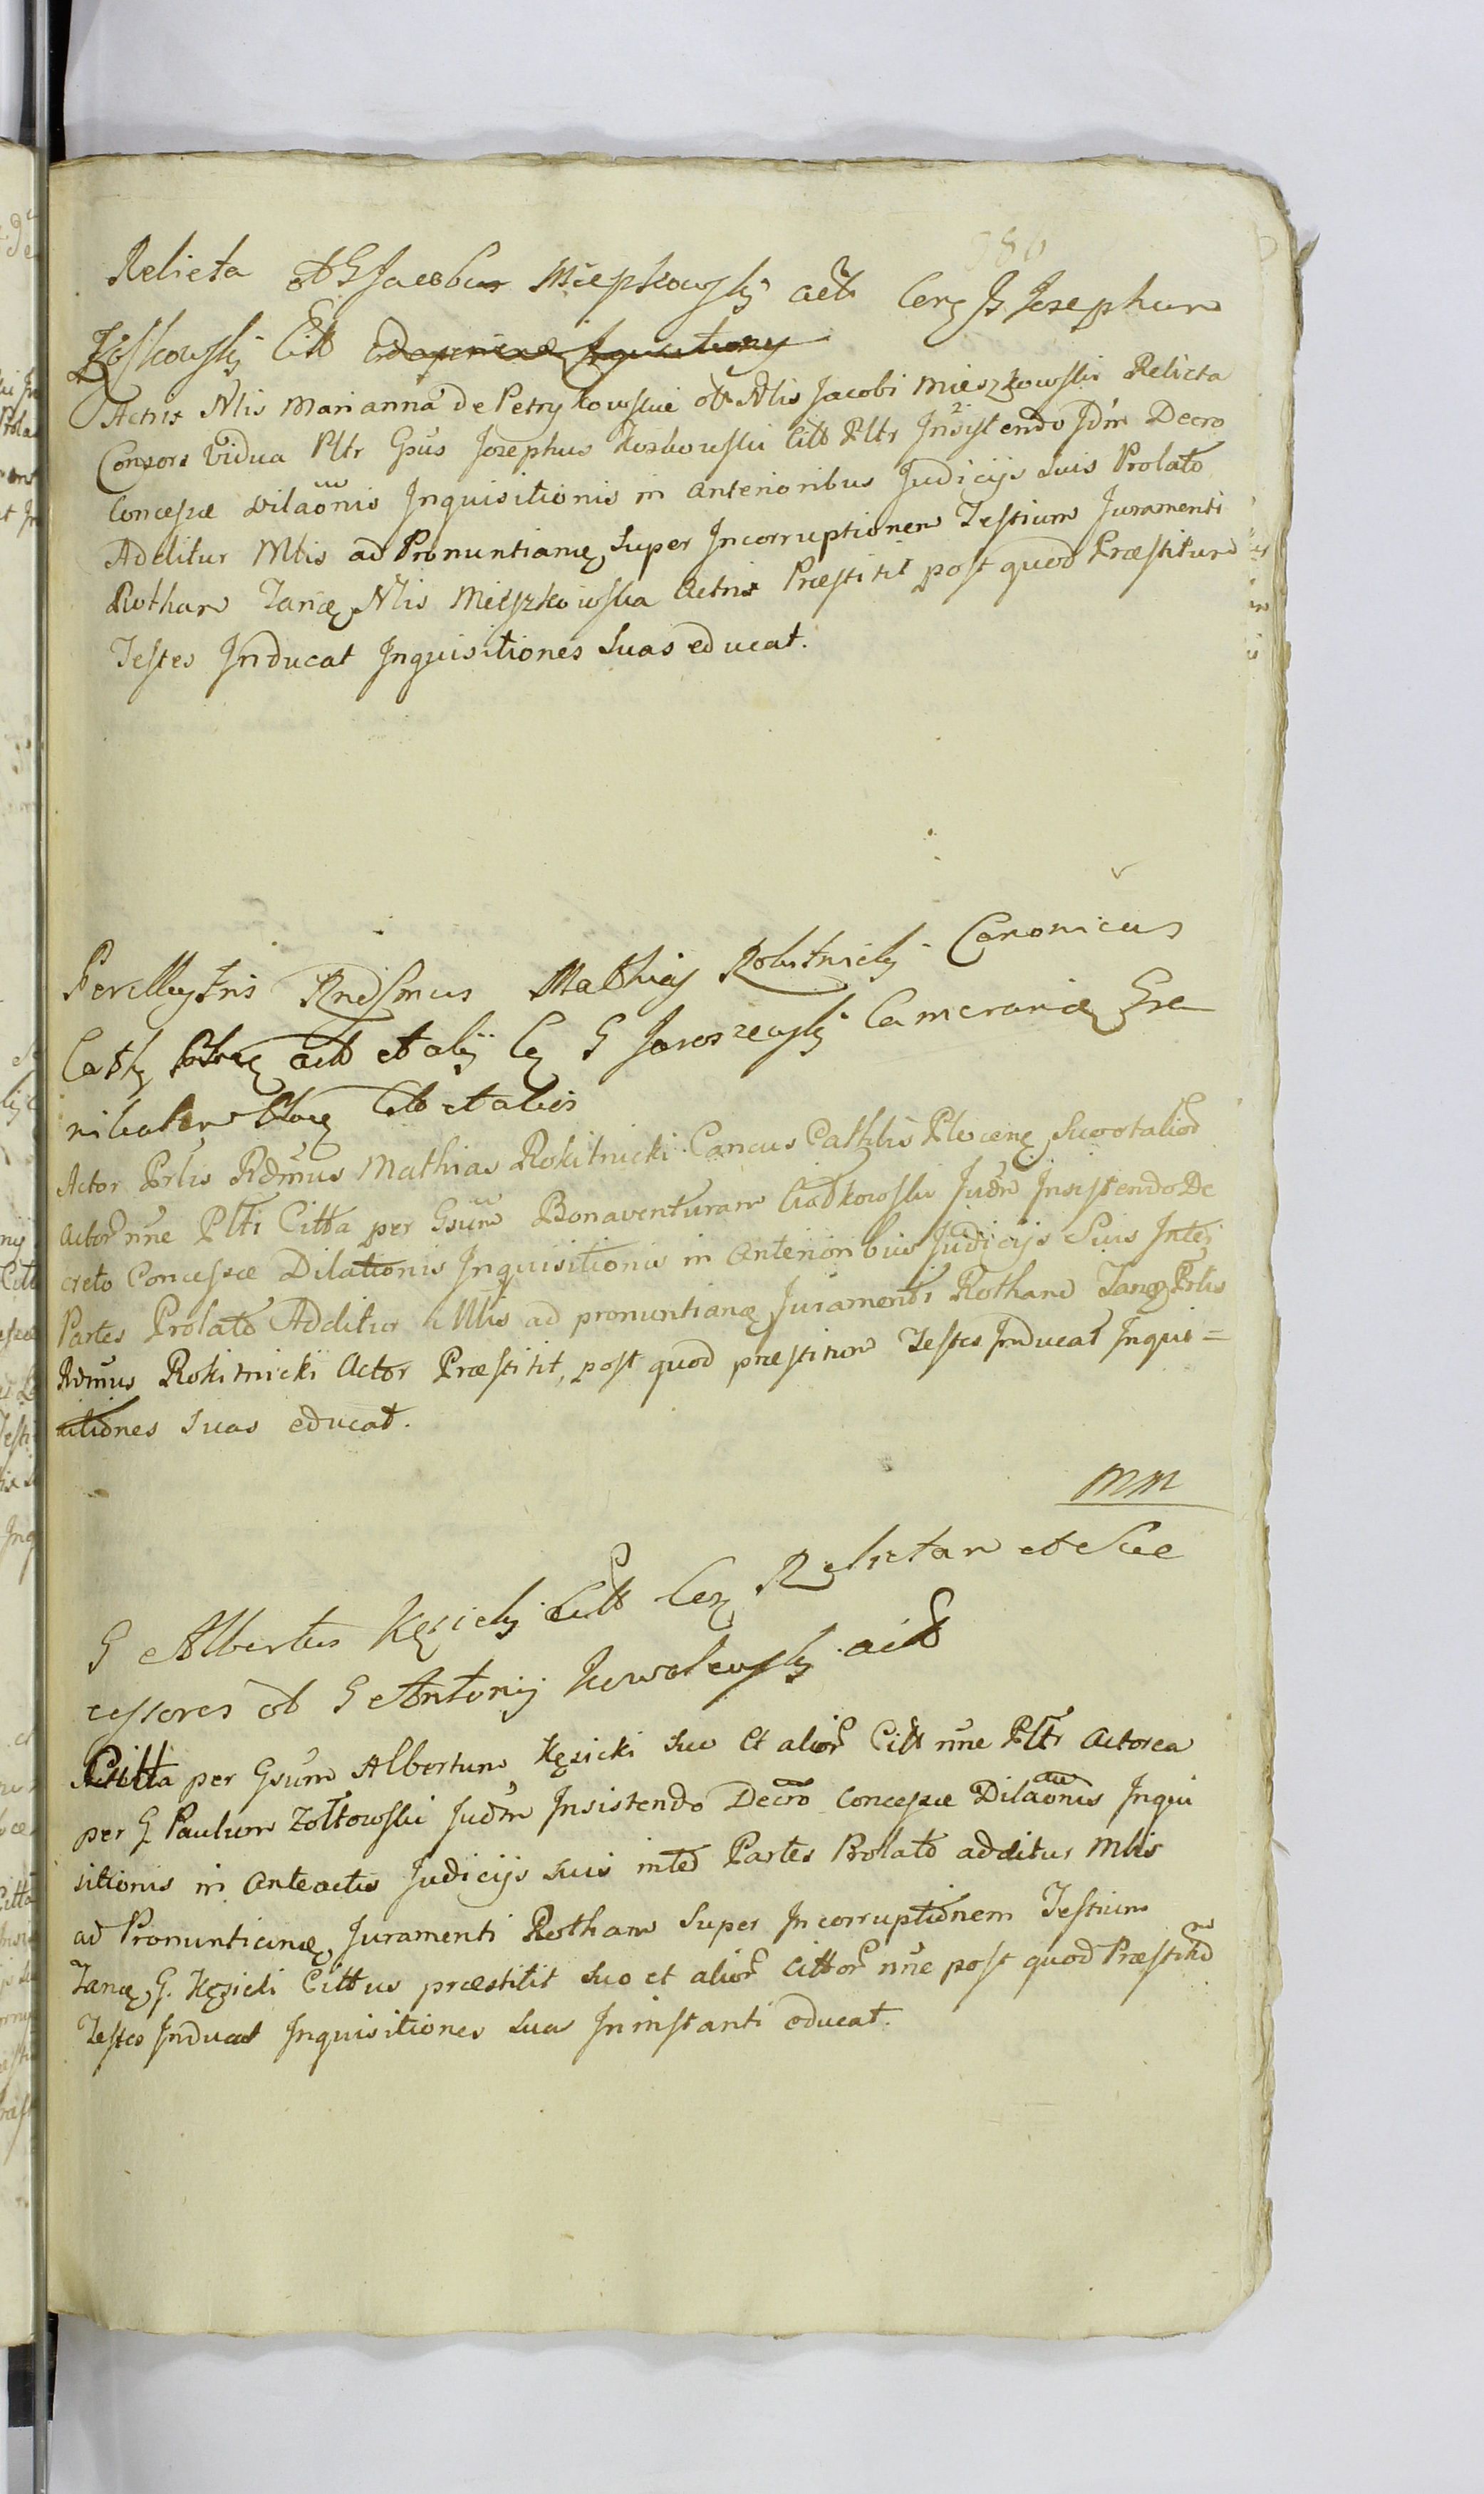 986
Relicta ol G Jacobus Mieszkowsky act Cerg G Josephum
Zoskowsky Citt
Actrix Nlis Marianna de Petrykowskie olt Nlis Jacobi Mieszkowski Relicta
Consors Vidua Pltr Gsus Josephus Koskowski Citt Pltr Insistendo Jdm Decro
Concessæ Dilaonis Inquisitionis in Anterioribus Judicijs Suis Prolato
Additur Mlis ad Pronuntianę Super Incorruptionem Testium Juramenti
Rotham Tanę Nlis Mieszkowska Actrix Præstitit post quod Præstitum
Testes Inducat Inquisitiones Suas educat.
Perillustris Rndssmus Mathias Rokitnicky Canonicus
Cathę actt et alij Cę G Jaroszewsky Camerarię Gra
nitalem Citt et alios
Actor Prlis Rdmus Mathias Rokitnicki Cancus Cathlis Plocenę Suo et alior
Actor nne Plti Citta per Gsum Bonaventuram Ciołkowski Judm Insistendo De
creto Concessæ Dilationis Inquisitionis in Anterioribus Judicijs Suis Inter
Partes Prolato Additur Mlis ad pronuntianę Juramenti Rotham Tanę Prlis
Rdmus Rokitnicki Actor Præstitit, post quod præstitum Testes Inducat Inqui=
sitiones Suas educat.
MM
G Albertus Kęsicky Citt Cerę Relictam et Suc
cessores ol G Antonij Kowalewsky actt
Citta per Gsum Albertum Kęsicki Suo et alior Citt nne Pltr Actorea
per G. Paulum Zołtowski Judm Insistendo Decro Concessæ Dilaonis Inqui
sitionis in Anteactis Judicijs Suis inter Partes Prolato additur Mlis
ad Pronuntianę Juramenti Rotham Super Incorruptionem Testium
Tanę G. Kęsicki Cittus præstitit Suo et alior Cittor nne post quod Præstitm
Testes Inducat Inquisitiones Sua In instanti educat.